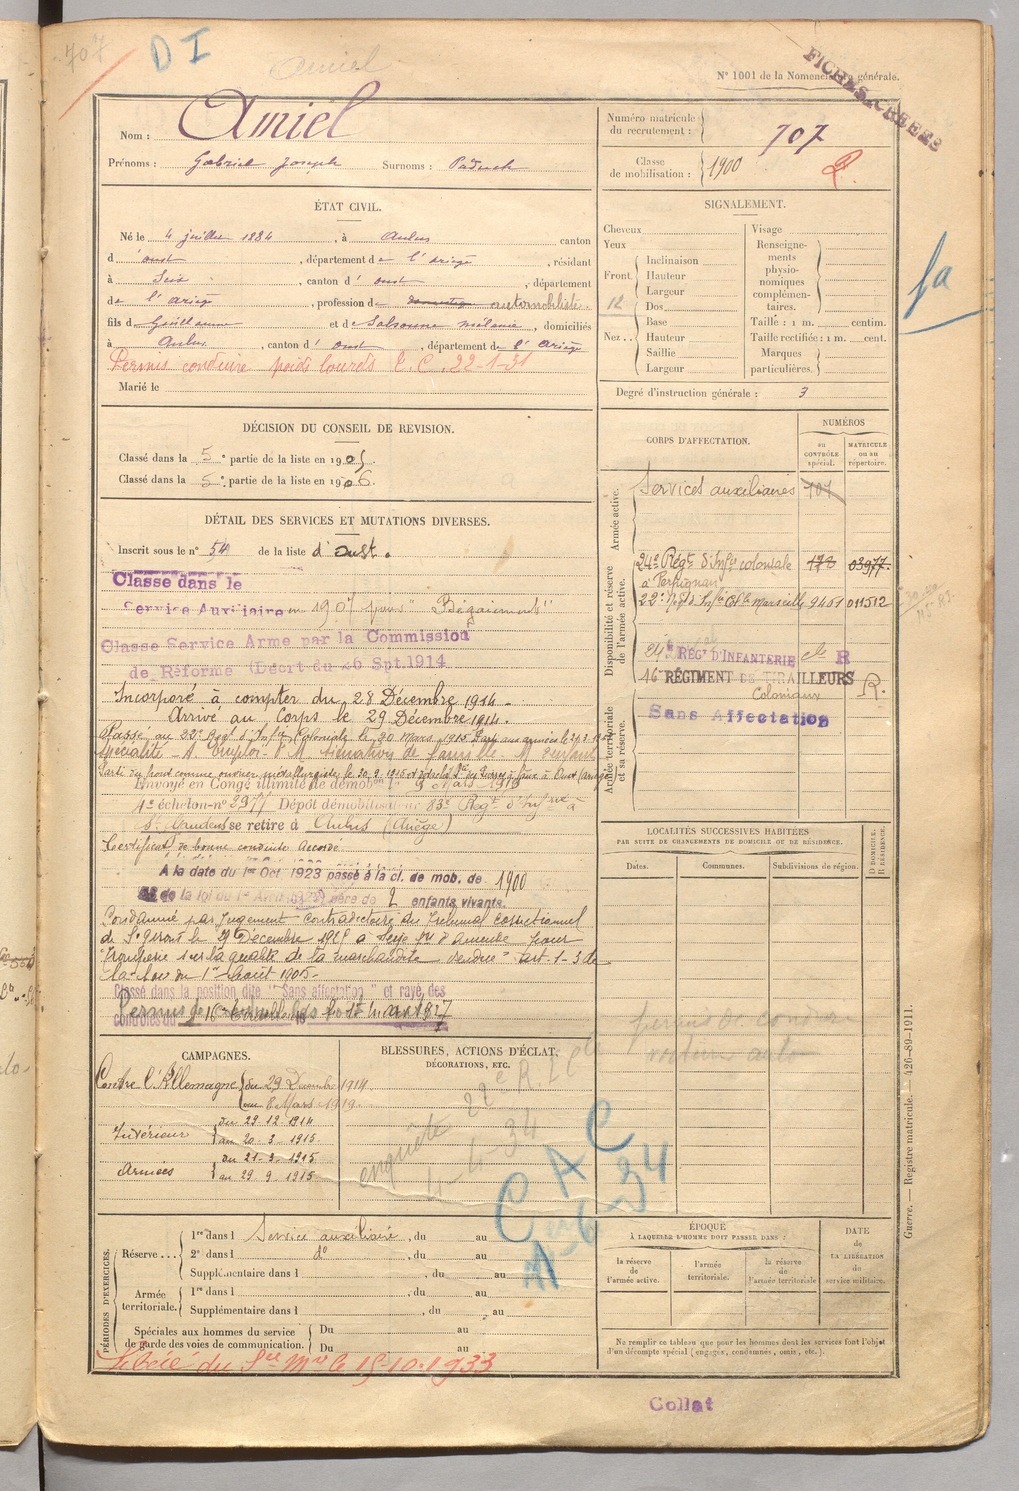 707
D I
Amiel
N° 1001 de la Nomenclature générale.
FICHES CREEES
Nom : Amiel
Prénoms : Gabriel Joseph Surnoms :
Numéro matricule du recrutement : 707
Classe de mobilisation : 1900
ÉTAT CIVIL.
Né le 4 juillet 1884, à Aulus canton
d'oust, département de l'ariège, résidant
à Seix, canton d'oust, département
de l'ariège, profession de automobiliste
fils de Guillaume et de mélanie, domiciliés
à Aulus, canton d'oust, département de l'ariège
Permis conduire poids lourds C.C. 22-1-31
Marié le
SIGNALEMENT.
Cheveux
Yeux
Front
Inclinaison
Hauteur
Largeur
12
Nez
Dos
Base
Hauteur
Saillie
Largeur
Visage
Renseignements physionomiques complémentaires.
Taille : 1 m. centim.
Taille rectifiée : 1 m. cent.
Marques particulières.
Degré d'instruction générale : 3
DÉCISION DU CONSEIL DE REVISION.
Classé dans la 5e partie de la liste en 1905.
Classé dans la 5e partie de la liste en 1906.
DÉTAIL DES SERVICES ET MUTATIONS DIVERSES.
Inscrit sous le n° 54 de la liste d'oust.
Classé dans le
Service Auxiliaire en 1907 pour "Bégaiement"
Classé Service Armé par la Commission
de Réforme (Décrt du 26 Spt.1914
Incorporé à compter du 28 Décembre 1914.
Arrivé au Corps le 29 Décembre 1914.
Passé au 22e Regt d'Infie Coloniale le 20 mars 1915
Envoyé en Congé illimité de démobon le 8 Mars 1919
1e échelon n° 2977 Dépôt démobilisateur 83e Régt d'Infie à
St Gaudens se retire à Aulus (Ariège)
Certificat de bonne conduite Accordé
A la date du 1er Oct. 1923 passé à la cl. de mob. de 1900
de la loi du 1er Avril 1923) père de 2 enfants vivants.
Condamné par jugement contradictoire du Tribunal correctionnel
de St Girons le 29 Décembre à d'amende pour
"Tromperie sur la qualité de la marchandise vendue" art. 1-3 de
la loi du 1er Août 1905-
Classé dans la position dite "Sans affectation" et rayé des
contrôles du
CORPS D'AFFECTATION.
NUMÉROS
au CONTRÔLE spécial.
MATRICULE ou au répertoire.
Armée active.
Services auxiliaires 707
Disponibilité et réserve de l'armée active.
24e Régt d'Infie coloniale 03977
à Perpignan
22e Regt d'Infie Cle Marseille 9451 011512
24e REGt D'INFANTERIE cle R
16e RÉGIMENT DE TIRAILLEURS R.
Coloniaux
Armée territoriale et sa réserve.
Sans Affectation
LOCALITÉS SUCCESSIVES HABITÉES
PAR SUITE DE CHANGEMENTS DE DOMICILE OU DE RÉSIDENCE.
Dates.
Communes.
Subdivisions de région.
D DOMICILE. R RÉSIDENCE.
permis de conduire
voiture auto
CAMPAGNES.
Contre l'Allemagne du 29 Décembre 1914
au 8 Mars 1919.
Intérieur du 29.12.1914
au 20.3.1915.
Armées du 21.3.1915
au 29.9.1915
BLESSURES, ACTIONS D'ÉCLAT,
DÉCORATIONS, ETC.
enquête
4-4-34
C A C
PÉRIODES D'EXERCICES.
Réserve
1re dans l Service auxiliaire, du au
2e dans l do du au
Supplémentaire dans l, du au
Armée territoriale.
1re dans l, du au
Supplémentaire dans l, du au
Spéciales aux hommes du service de garde des voies de communication.
Du au
Du au
Libéré du Sce Mre le 15-10-1933
ÉPOQUE
À LAQUELLE L'HOMME DOIT PASSER DANS :
la réserve de l'armée active.
l'armée territoriale.
la réserve de l'armée territoriale
DATE de LA LIBÉRATION du service militaire.
Ne remplir ce tableau que pour les hommes dont les services font l'objet
d'un décompte spécial (engagés, condamnés, omis, etc.).
Guerre. — Registre matricule. — 426-89-1911.
Collat